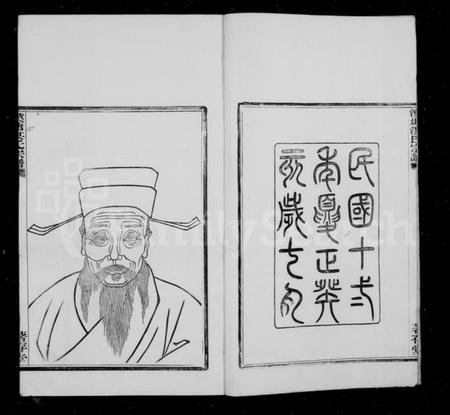 民國十二
年夏正癸
亥歲七月
FamilySearch